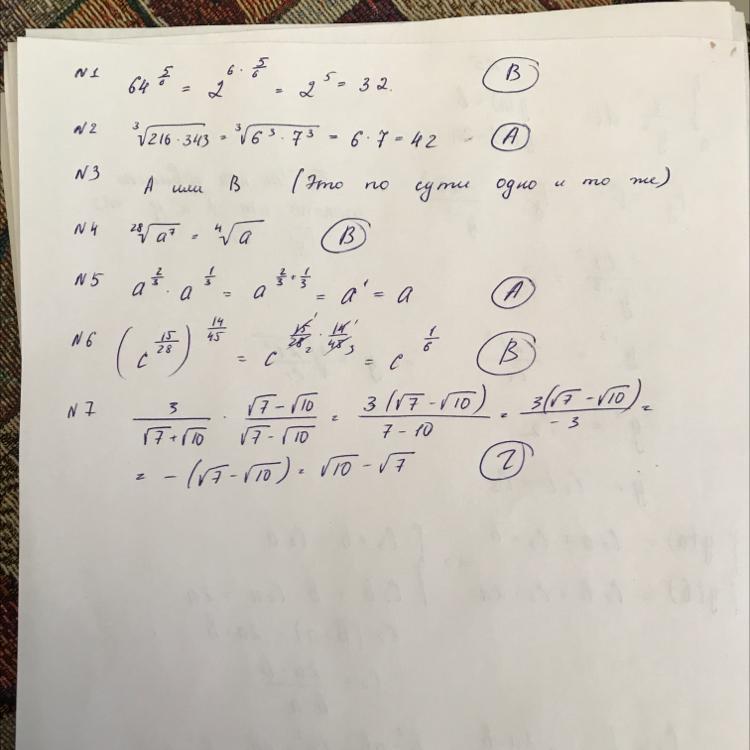 N1 64^(5/6) = 2^(6·5/6) = 2^5 = 32. В
N2 ∛(216·343) = ∛(6³·7³) = 6·7 = 42 А
N3 А или В (Это по сути одно и то же)
N4 ²⁸√(a⁷) = ⁴√a В
N5 a^(2/3) · a^(1/3) = a^(2/3+1/3) = a¹ = a А
N6 (c^(15/28))^(14/45) = c^(15/28 · 14/45) = c^(1/6) В
N7 3/(√7+√10) · (√7−√10)/(√7−√10) = 3(√7−√10)/(7−10) = 3(√7−√10)/(−3) =
= −(√7−√10) = √10−√7 Г